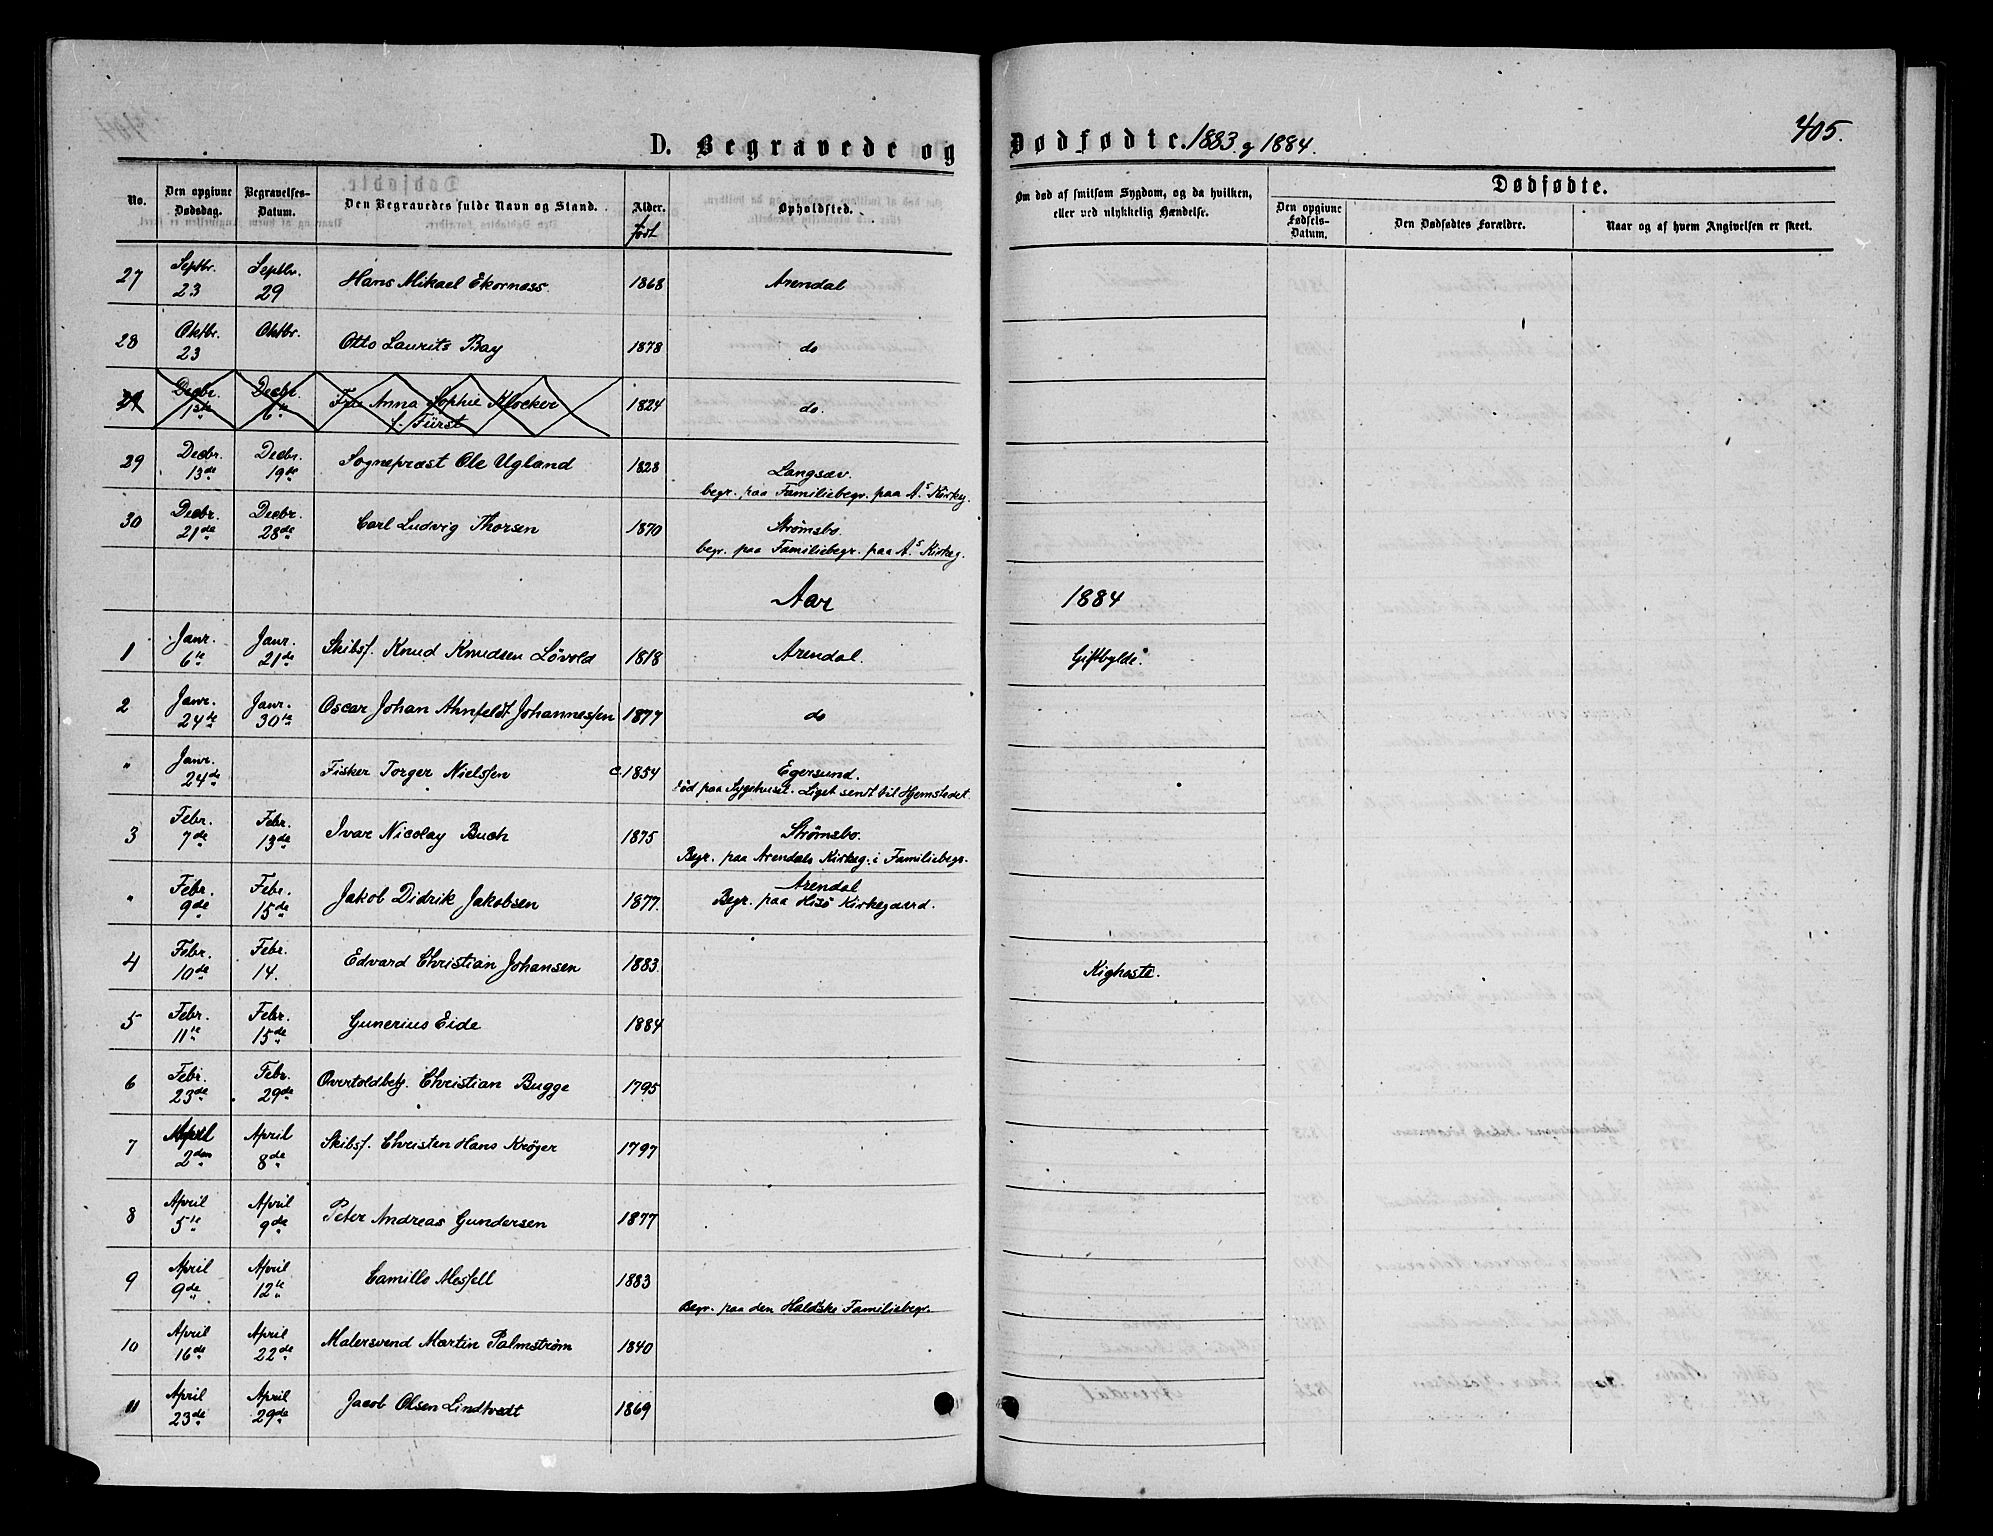 D. Begravede og Dødfødte. 1883 og 1884. 405.
No. | Den opgivne Dødsdag. | Begravelses-Datum. | Den Begravedes fulde Navn og Stand. | Alder. født | Opholdsted. | Om død af smitsom Sygdom, og da hvilken, eller ved ulykkelig Hændelse. | Dødfødte. | Den opgivne Fødsels-Datum. | Den Dødfødtes Forældre. | Naar og af hvem Angivelsen er skeet.
27 Septbr. 23 Septbr. 29 Hans Mikael Ekorness. 1868 Arendal
28 Oktbr. 23 Oktbr. Otto Laurits Bay 1878 do
29 Decbr. 1ste Decbr. 6te Frue Anna Sophie Klocker f. Fürst 1824 do.
29 Decbr. 13de Decbr. 19de Sognepræst Ole Ugland 1828 Langsæv. begr. paa Familiebegr. paa A.s Kirkeg.
30 Decbr. 21de Decbr. 28de Carl Ludvig Thorsen 1870 Strømsbo. begr. paa Familiebegr. paa A.s Kirkeg.
Aar 1884
1 Janr. 6te Janr. 21de Skibsf. Knud Knudsen Lövold 1818 Arendal. Giftbylde.
2 Janr. 24de Janr. 30te Oscar Johan Ahnfeldt Johannessen 1877 do
" Janr. 24de Fisker Torger Nielssen c. 1854 Egersund. Död paa Sygehuset. Liget sendt til Hjemstedet.
3 Febr. 7de Febr. 13de Ivar Nicolay Buch 1875 Strømsbo. Begr. paa Arendals Kirkeg. i Familiebegr.
" Febr. 9de Febr. 15de Jakob Didrik Jakobsen 1877. Arendal Begr. paa Hisö Kirkegaard.
4 Febr. 10de Febr. 14. Edvard Christian Johansen 1883. Kighoste.
5 Febr. 11te Febr. 15de Gunerius Eide 1884
6 Febr. 23de Febr. 29de Overtoldbetj. Christian Bugge 1795
7 April 2den April 8de Skibsf. Christen Hans Krøger 1797
8 April 5te April 9de Peter Andreas Gundersen 1877
9 April 9de April 12te Camillo Messell 1883 Begr. paa den Holdtske Familiebegr.
10 April 16de April 22de Malersvend Martin Palmstrøm 1840
11 April 23de April 29de Jacob Olsen Lindtvedt 1869